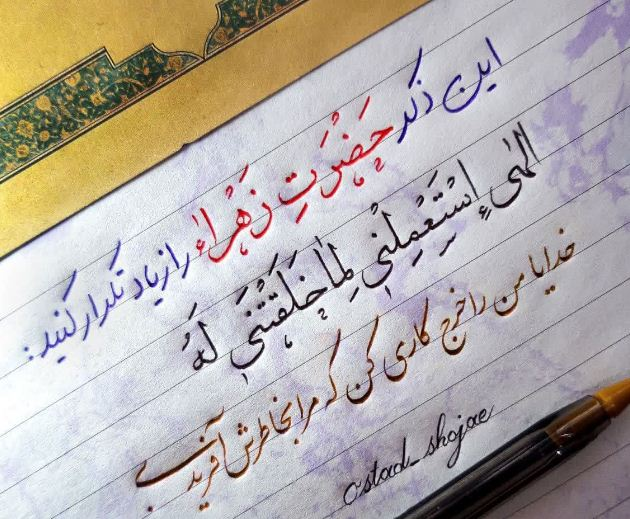 این ذکر حَضْرَتِ زَهْراء را زیاد تکرار کنید:
الهی إِسْتَعْمِلْنی لِما خَلَقْتَنی لَهُ
خدایا من را خرج کاری کن که مرا بخاطرش آفریدی
ostad_shojae